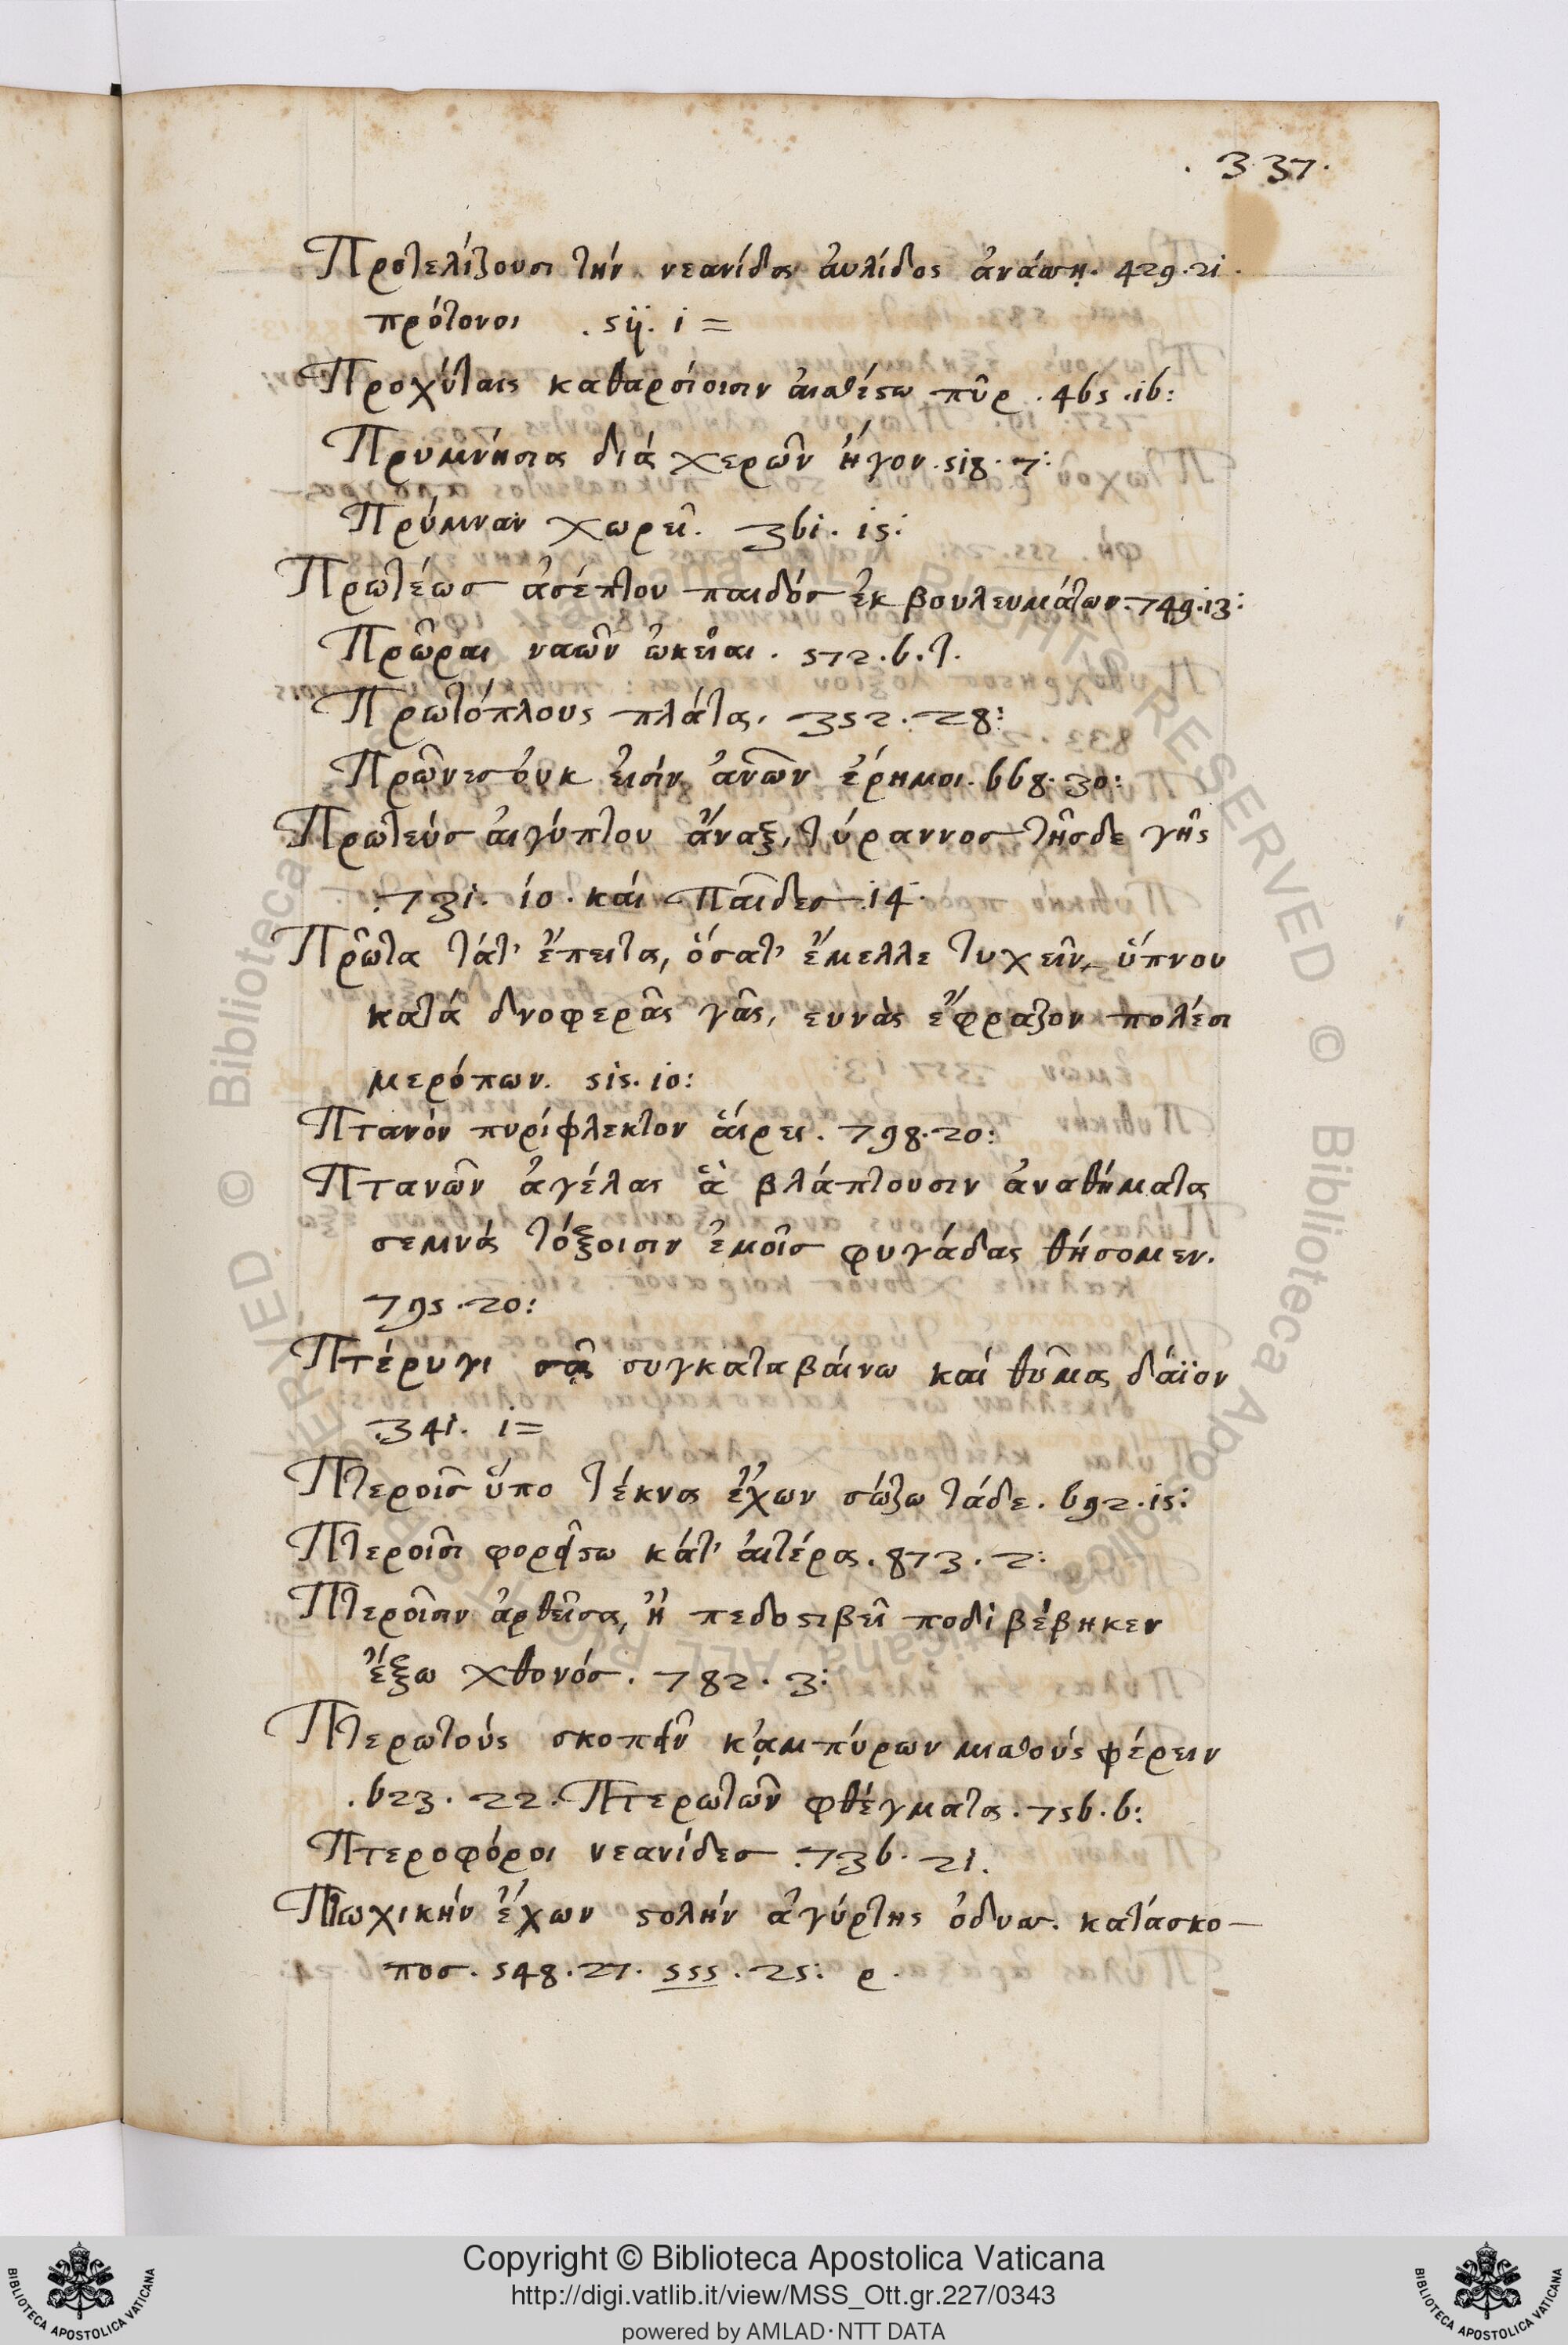 . 337.
Προτελίζουσι τὴν νεανίδα αὐλίδος ἀνάσσῃ. 429. 21.
πρότονοι . 511. 1 =
Προχύταις καθαρσίοισιν αἰθέσω πῦρ . 465 . 16:
Πρυμνήσια διὰ χερῶν ἦγον. 518. 7:
Πρύμναν χωρεῖ. 361. 15:
Πρωτέωσ ἀσέπτου παιδόσ ἐκ βουλευμάτων. 749. 13:
Πρῶραι ναῶν ὠκεῖαι . 572 . 6. τ.
Πρωτόπλους πλάτα. 352 . 28:
Πρῶνεσ ὀυκ εἰσὶν ἀνῶν ἐρημοι. 668. 30:
Πρωτεύσ ἀιγύπτου ἄναξ, τύραννοσ τῆσδε γῆς
. 731. 10 . καὶ Παῖδεσ 14.
Πρῶτα τάτ' ἔπειτα, ὅσατ' ἔμελλε τυχεῖν, ὕπνου
κατὰ δνοφερᾶς γᾶς, ευνὰς ἔφραζον πολέσι
μερόπων. 515. 10:
Πτανὸν πυρίφλεκτον ἄιρει . 798. 20:
Πτανῶν ἀγέλας ἃ βλάπτουσιν ἀναθήματα
σεμνὰ τόξοισιν ἐμοῖσ φυγάδας θήσομεν.
795 . 20:
Πτέρυγι σᾷ συγκαταβάινω καὶ θῦμα δάϊον
. 341. 1 =
Πτεροῖσ ὕπο τέκνα ἔχων σώζω τάδε. 692. 15:
Πτεροῖσι φορ κάτ' ἀιτέρα. 873 . 2:
Πτεροῖσιν ἀρθεῖσα, ἢ πεδοστιβεῖ ποδὶ βέβηκεν
ἔξω χθονόσ . 782 . 3:
Πτερωτοὺς σκοπῶν κἀμπύρων μιαθοὺς φέρειν
. 623 . 22. Πτερωτῶν φθέγματα . 756. 6:
Πτεροφόροι νεανίδεσ . 736. 21.
Πτωχικὴν ἔχων στολὴν ἀγύρτης ὀδυσ. κατάσκο-
ποσ. 548. 27. 555 . 25: ρ.
Copyright © Biblioteca Apostolica Vaticana
http://digi.vatlib.it/view/MSS_Ott.gr.227/0343
powered by AMLAD·NTT DATA